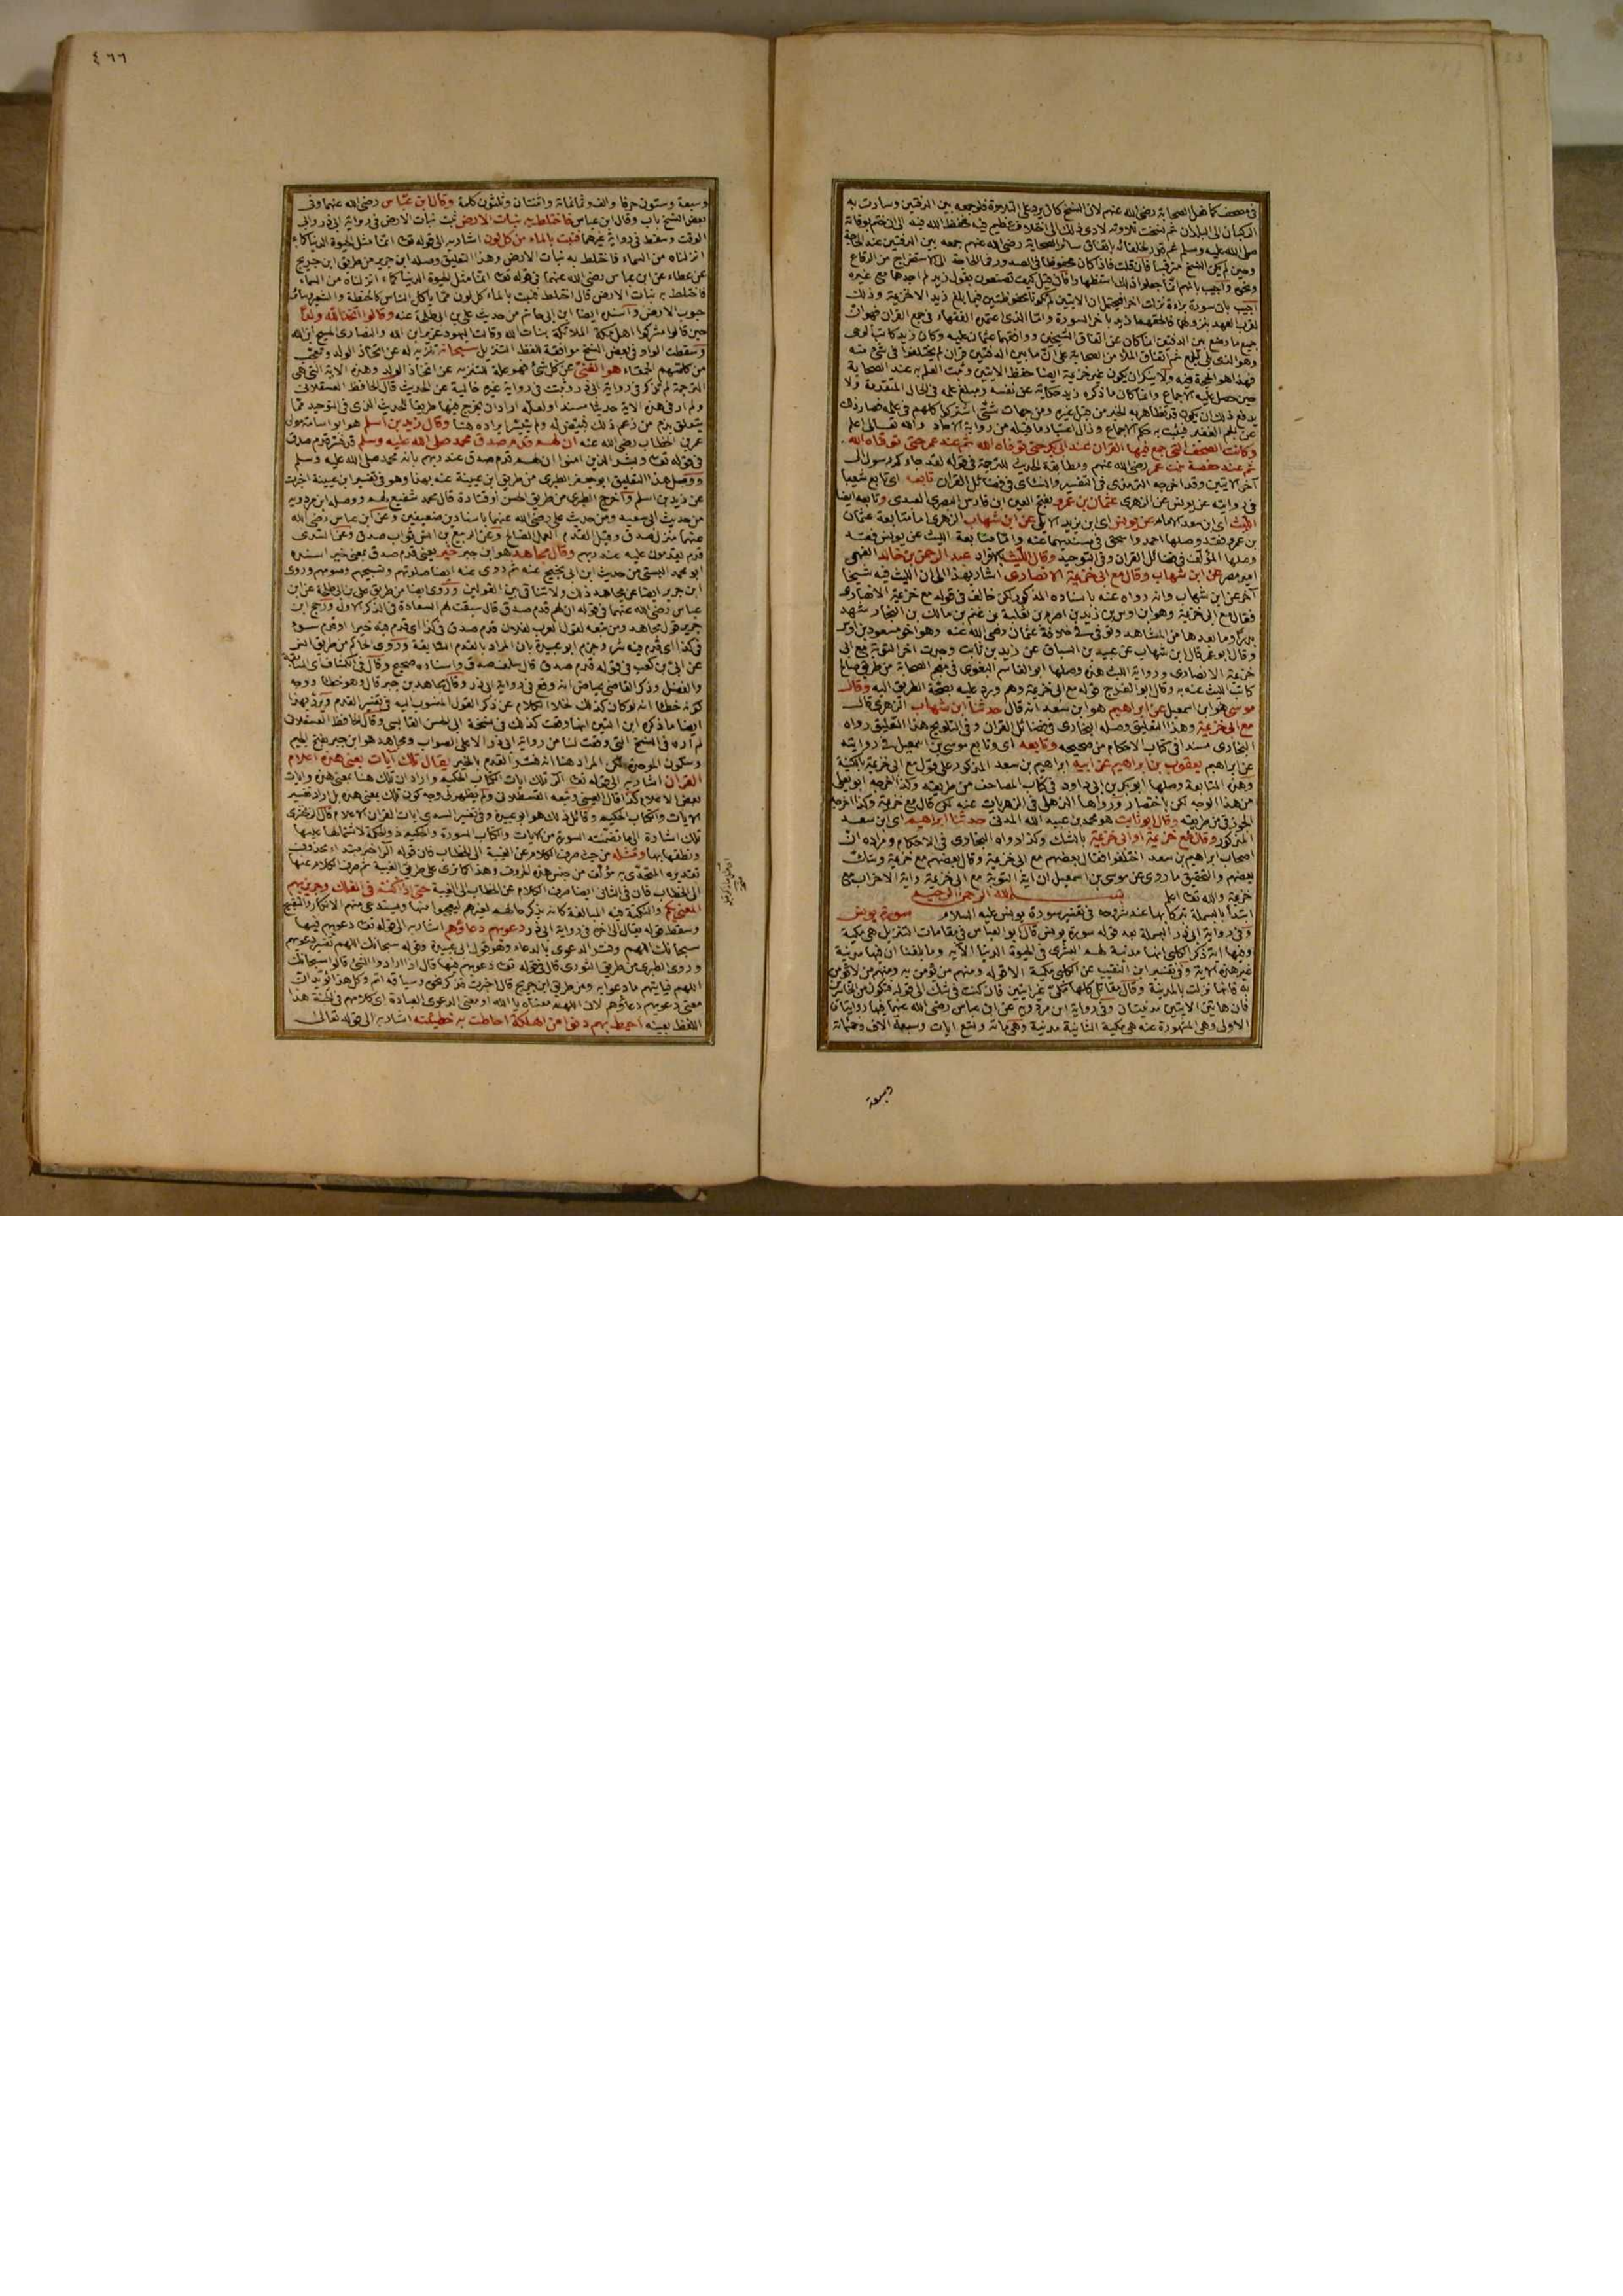 في مصحف كما فعل الصحابة رضي الله عنهم لان الشيخ كان يرد على التلاوة فلو جمعه بين الدفتين وسارت به
الركبان الى البلدان ثم نسخت تلاوته لادى ذلك الى اختلاف عظيم فيه فحفظ الله فيه الى ان ختم بوفاته
صلى الله عليه وسلم ثم قدر لخلفائه باتفاق سائر الصحابة رضي الله عنهم جمعه بين الدفتين عند الحاجة
وحين لم يبق النسخ مترقبا فان قلت فاذا كان محفوظا في الصدور فما الحاجة الى الاستخراج من الرقاع
ونحوه واجيب بانهم انما جعلوا ذلك استظهارا فان قيل كيف تصنعون بقول زيد لم اجدهما مع غيره
اجيب بان سورة براءة نزلت اخرا فيحتمل ان الايتين لم تكونا محفوظتين فيما بلغ زيد الا خزيمة وذلك
لقرب العهد بنزولها فالحقهما زيد باخر السورة واما الذي اعتمده الفقهاء في جمع القران فهو ان
جميع ما وضع بين الدفتين انما كان عن اتفاق الشيخين ووافقهما عثمان عليه وكان زيد كاتب الوحي
وهو الذي ثم اتفاق الملا من الصحابة على ان ما بين الدفتين قران لم يختلفوا في شئ منه
فهذا هو الحجة فيه ولا ينكر ان يكون غير خزيمة ايضا حفظ الايتين وثبت العلم به عند الصحابة
حين حصل عليه الاجماع وانما كان ما ذكره زيد حكاية عن نفسه ومبلغ علمه في الحال المتقدمة ولا
يدفع ذلك ان يكون قد تظاهر به الخبر من قبل غيره ومن جهات شتى اشترك كلهم في علمه فصار ذلك
عن الجم الغفير فيثبت به حكم الاجماع وزال اعتبار ما قبله من رواية الاحاد والله تعالى اعلم
وكانت الصحف التي جمع فيها القران عند ابي بكر حتى توفاه الله ثم عند عمر حتى توفاه الله
ثم عند حفصة بنت عمر رضي الله عنهم ومطابقة الحديث للترجمة في قوله لقد جاءكم رسول الى
آخر الايتين وقد اخرجه الترمذي في التفسير والنسائي في فضائل القران تابعه اي تابع شعيبا
في روايته عن يونس عن الزهري عثمان بن عمرو بفتح العين ابن فارس البصري العبدي وتابعه ايضا
الليث اي ابن سعد الامام عن يونس اي ابن يزيد الايلي عن ابن شهاب الزهري اما متابعة عثمان
بن عمر فقد وصلها احمد واسحق في مسنديهما عنه واما متابعة الليث عن يونس فقد
وصلها المؤلف في فضائل القران وفي التوحيد وقال الليث عبد الرحمن بن خالد الفهمي
امير مصر عن ابن شهاب وقال مع ابي خزيمة الانصاري اشار بهذا الى ان الليث فيه شيخا
آخر عن ابن شهاب وانه رواه عنه باسناده المذكور لكن خالف في قوله مع خزيمة الانصاري
فقال مع ابي خزيمة وهو ابن اوس بن زيد بن اصرم بن ثعلبة بن غنم بن مالك بن النجار شهد
بدرا وما بعدها من المشاهد وتوفي في خلافة عثمان رضي الله عنه وهو اخو مسعود بن اوس
وقال ابو عمر قال ابن شهاب عن عبيد بن السباق عن زيد بن ثابت وجدت اخر التوبة مع ابي
خزيمة الانصاري ورواية الليث هذه وصلها ابو القاسم البغوي في معجم الصحابة من طريق صالح
كاتب الليث عنه به وقال ابو الفرج قوله مع ابي خزيمة وهم ورد عليه بصحة الطريق اليه وقال
موسى هو ابن اسمعيل عن ابراهيم هو ابن سعد انه قال حدثنا ابن شهاب الزهري قال
مع ابي خزيمة وهذا التعليق وصله البخاري في فضائل القران وفي التلويح هذا التعليق رواه
البخاري مسندا في كتاب الاحكام من صحيحه وتابعه اي وتابع موسى بن اسمعيل في روايته
عن ابراهيم يعقوب بن ابراهيم عن ابيه ابراهيم بن سعد المذكور على قول مع ابي خزيمة بالكنية
وهذه المتابعة وصلها ابو بكر بن ابي داود في كتاب المصاحف من طريقه وكذا اخرجه ابو يعلى
من هذا الوجه لكن باختصار ورواها الذهلي في الزهريات عنه لكن قال مع خزيمة وكذا اخرجه
الجوزقي من طريقه وقال ابو ثابت هو محمد بن عبيد الله المدني حدثنا ابراهيم اي ابن سعد
المذكور وقال مع خزيمة او ابي خزيمة بالشك وكذا رواه البخاري في الاحكام ومراده ان
اصحاب ابراهيم بن سعد اختلفوا فقال بعضهم مع ابي خزيمة وقال بعضهم مع خزيمة وشك
بعضهم والتحقيق ما روي عن موسى بن اسمعيل ان آية التوبة مع ابي خزيمة وآية الاحزاب مع
خزيمة والله تعالى اعلم بسم الله الرحمن الرحيم
ابتدأ بالبسملة تبركا بها عند شروعه في تفسير سورة يونس عليه السلام سورة يونس
وفي رواية ابي ذر البسملة بعد قوله سورة يونس قال ابو العباس في مقامات التنزيل هي مكية
وفيها اية ذكر الكلبي انها مدنية لهم البشرى في الحيوة الدنيا الآية وما بلغنا ان فيها مدنية
غير هذه الاية وفي تفسير ابن النقيب عن الكلبي مكية الا قوله ومنهم من يؤمن به ومنهم من لا يؤمن
به فانها نزلت بالمدينة وقال مقاتل كلها مكي غير ايتين فان كنت في شك الى قوله فتكون من الخاسرين
فان هاتين الايتين مدنيتان وفي رواية ابن مردويه عن ابن عباس رضي الله عنهما فيها روايتان
الاولى وهي المشهورة عنه هي مكية الثانية مدنية وهي مائة وتسع ايات وسبعة الاف وخمسمائة
وسبعة
٤٦٦
وسبعة وستون حرفا والف وثمانمائة واثنتان وثلثون كلمة وقال ابن عباس رضي الله عنهما وفي
بعض النسخ باب وقال ابن عباس فاختلط به نبات الارض نبت نبات الارض في رواية ابي ذر وابي
الوقت وسقط في رواية غيرهما فنبت بالماء من كل لون اشار به الى قوله تعالى انما مثل الحيوة الدنيا كماء
انزلناه من السماء فاختلط به نبات الارض وهذا التعليق وصله ابن جرير من طريق ابن جريج
عن عطاء عن ابن عباس رضي الله عنهما في قوله تعالى انما مثل الحيوة الدنيا كماء انزلناه من السماء
فاختلط به نبات الارض قال اختلط فنبت بالماء كل لون مما ياكل الناس كالحنطة والشعير وسائر
حبوب الارض واسنده ايضا ابن ابي حاتم من حديث علي بن ابي طلحة عنه وقالوا اتخذ الله ولدا
حين قالوا مشركوا اهل مكة الملائكة بنات الله وقالت اليهود عزير ابن الله والنصارى المسيح ابن الله
وسقطت الواو في بعض النسخ موافقة للفظ التنزيل سبحانه تنزيه له عن اتخاذ الولد وتعجب
من كلمتهم الحمقاء هو الغني عن كل شئ فهو علة لتنزيه عن اتخاذ الولد وهذه الاية التي هي
الترجمة لم تذكر في رواية ابي ذر وثبتت في رواية غيره خالية عن الحديث قال الحافظ العسقلاني
ولم ار في هذه الاية حديثا مسندا ولعله اراد ان يخرج فيها طريقا للحديث الذي في التوحيد مما
يتعلق بذم من زعم ذلك فبيض له ولم يتيسر ايراده هنا وقال زيد بن اسلم هو ابو اسامة مولى
عمر بن الخطاب رضي الله عنه ان لهم قدم صدق محمد صلى الله عليه وسلم قد فسر قدم صدق
في قوله تعالى وبشر الذين امنوا ان لهم قدم صدق عند ربهم بانه محمد صلى الله عليه وسلم
ووصل هذا التعليق ابو جعفر الطبري من طريق ابن عيينة عنه بهذا وهو في تفسير ابن عيينة اخبرت
عن زيد بن اسلم واخرج الطبري من طريق الحسن او قتادة قال محمد شفيع لهم ووصله ابن مردويه
من حديث ابي سعيد ومن حديث علي رضي الله عنهما باسنادين ضعيفين وعن ابن عباس رضي الله
عنهما منزل صدق وقيل القدم العمل الصالح وعن الربيع بن انس ثواب صدق وعن السدي
قدم يقدمون عليه عند ربهم وقال مجاهد هو ابن جبر خير يعني قدم صدق بمعنى خير اسنده
ابو محمد البستي من حديث ابن ابي نجيح عنه ثم روى عنه ايضا صلوتهم وتسبيحهم وصومهم وروى
ابن جرير ايضا عن مجاهد ذلك ولا تنافي بين القولين وروى ايضا من طريق علي بن ابي طلحة عن ابن
عباس رضي الله عنهما في قوله ان لهم قدم صدق قال سبقت لهم السعادة في الذكر الاول ورجح ابن
جرير قول مجاهد ومن تبعه لقول العرب لفلان قدم صدق في كذا اي قدم فيه خيرا او قدم سوء
في كذا اي قدم فيه شرا وجزم ابو عبيدة بان المراد بالقدم السابقة وروى الحاكم من طريق انس
عن ابي بن كعب في قوله قدم صدق قال سلف صدق واسناده صحيح وقال في الكشاف اي سابقة
والفضل وذكر القاضي عياض انه وقع في رواية ابي ذر وقال مجاهد بن جبر قال وهو خطا ووجه
كونه خطا انه لو كان كذلك لخلا الكلام عن ذكر القول المنسوب اليه في تفسير القدم ويرد بهذا
ايضا ما ذكره ابن التين انها وقعت كذلك في نسخة ابي الحسن القابسي وقال الحافظ العسقلاني
لم اره في النسخ التي وقعت لنا من رواية ابي ذر الا على الصواب ومجاهد هو ابن جبر بفتح الجيم
وسكون الموحدة لكن المراد هنا انه فسر القدم بالخير يقال تلك آيات يعني هذه اعلام
القران اشار به الى قوله تعالى الر تلك ايات الكتاب الحكيم واراد ان تلك هنا بمعنى هذه وايات
بمعنى الاعلام كذا قال العيني وتبعه القسطلاني ولم يظهر لي وجه كون تلك بمعنى هذه بل اراد تفسير
الايات والكتاب الحكيم وقائل ذلك هو ابو عبيدة وفي تفسير السدي ايات القران الاعلام قال الزمخشري
تلك اشارة الى ما تضمنته السورة من الايات والكتاب السورة والحكيم ذو الحكمة لاشتمالها عليها
ونطقها بها ومثله من حيث صرف الكلام عن الغيبة الى الخطاب فان قوله الر خبر مبتداء محذوف
تقديره المتحدى به مؤلف من جنس هذه الحروف وهذا كما ترى على طريق الغيبة ثم صرف الكلام عنها
الى الخطاب فان في الثاني ايضا صرف الكلام عن الخطاب الى الغيبة حتى اذا كنتم في الفلك وجرين بهم
المعنى بكم والنكتة فيه المبالغة كانه يذكر حالهم لغيرهم ليعجبوا منها ويستدعي منهم الانكار والتقبيح
وسقط قوله يقال الى اخره في رواية ابي ذر دعويهم دعاؤهم اشار به الى قوله تعالى دعويهم فيها
سبحانك اللهم وفسر الدعوى بالدعاء وهو قول ابي عبيدة وقوله سبحانك اللهم تفسير دعويهم
وروى الطبري من طريق الثوري قال في قوله تعالى دعويهم فيها قال اذا ارادوا الشئ قالوا سبحانك
اللهم فياتيهم ما دعوا به ومن طريق ابن جريج قال اخبرت فذكر نحوه وسياقه اتم وكل هذا يؤيد ان
معنى دعويهم دعاؤهم لان اللهم معناه يا الله او معنى الدعوى العبادة اي كلامهم في الجنة هذا
اللفظ بعينه احيط بهم دنوا من الهلكة احاطت به خطيئته اشار به الى قوله تعالى